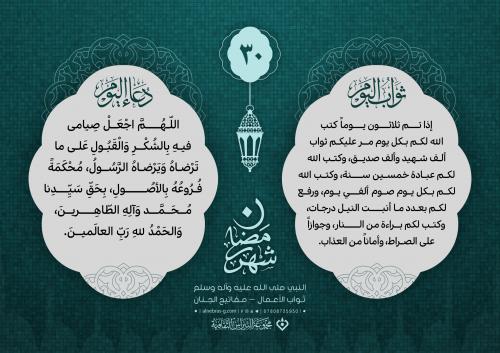 ٣٠
ثواب اليوم
إذا تـم ثلاثـون يـوماً كتب
الله لكم بكل يوم مر عليكم ثواب
ألف شهيد وألف صديق، وكتب الله
لكم عبادة خمسين سـنة، وكتب الله
لكم بكـل يـوم صوم ألفـي يوم، ورفع
لكم بعدد ما أنبـت النيل درجات،
وكتب لكم براءة من الـنار، وجوازاً
على الصراط، وأماناً من العذاب.
دعاء اليوم
اللّـهُـمَّ اجْعَـلْ صِيامى
فيـهِ بِالشُّـكْـرِ وَالْقَبُولِ عَلـى ما
تَرْضاهُ وَيَرْضاهُ الرَّسُولُ، مُحْكَمَةً
فُـرُوعُهُ بِالْاُصُـولِ، بِحَقِّ سَيِّـدِنا
مُـحَـمَّـدٍ وَآلِهِ الطّاهِـريـنَ،
وَالحَمْدُ للهِ رَبِّ العالَميـنَ.
شهر رمضان
النبي صلى الله عليه وآله وسلم
ثواب الأعمال – مفاتيح الجنان
alnebras-g.com
07808735950
مجموعة النبراس الثقافية